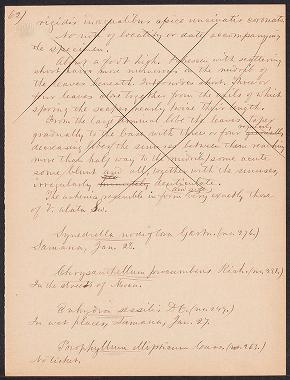 62)
rigidis inequalibus apice uncinatis coronato.
No note of locality or date accompanying
the specimen.
About a foot high. Stem with scattering
short hairs more numerous in the midrib of
the leaves beneath. Internodes short. Three or
four leaves close together from the axils of which
spring the scapes nearly twice their length.
From the large terminal lobe the leaves taper
gradually to the base with three or four
decreasing lobes the sinuses between them reaching
more than half way to the midrib, some acute
some blunt and all, together with the sinuses,
irregularly denticulate.
The achenia resemble in form and size very exactly those
of V. alata Sw.
Synedrella nodiflora Gaertn. (no. 276.)
Samana, Jan. 22.
Chrysanthellum procumbens Rich. (no. 238.)
In the streets of Moca.
Eclipta sessilis DC. (no. 249.)
In wet places, Samana, Jan. 27.
Porophyllum ellipticum Cass. (no. 263.)
No ticket.